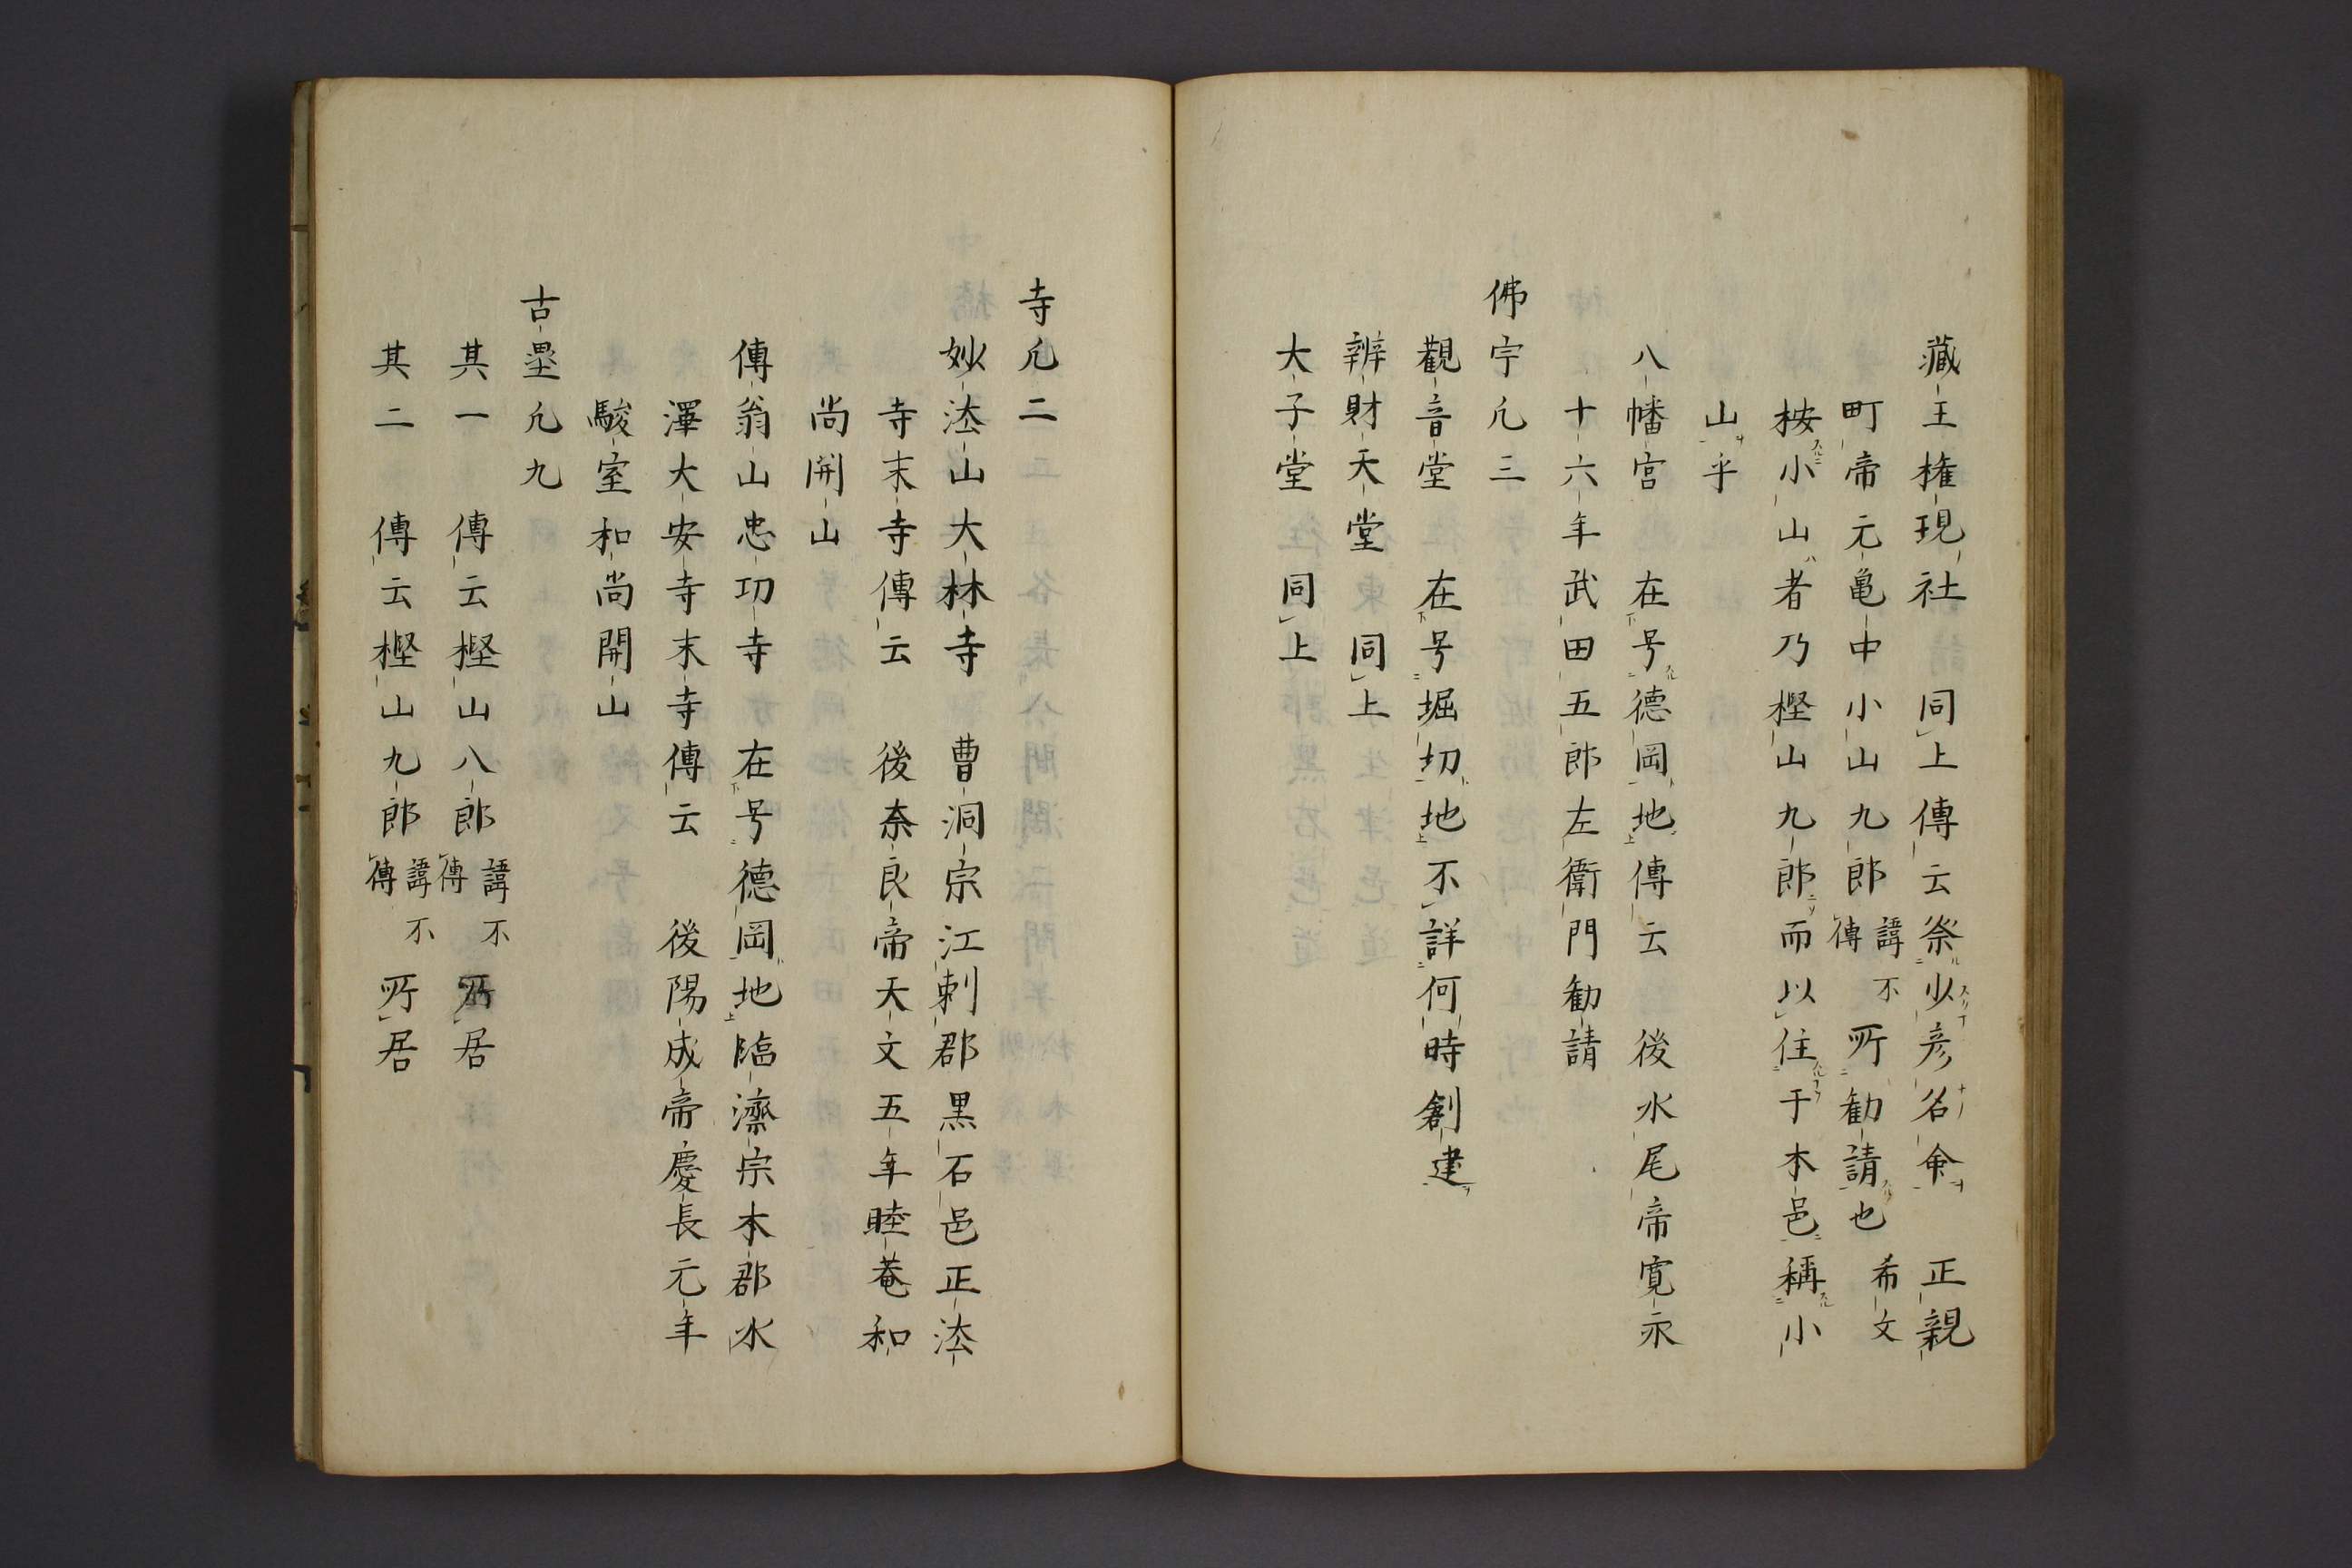 藏王権現社　同上傳云祭少彦名命　正親
町帝元亀中小山九郎諱不傳所勧請也　希文
按小山者乃樫山九郎而以住于本邑稱小
山乎
八幡宮　在号徳岡地傳云　後水尾帝寛永
十六年武田五郎左衛門勧請
佛宇凢三
觀音堂　在号堀切地不詳何時創建
辨財天堂　同上
大子堂　同上
寺凢二
妙法山大林寺　曹洞宗江刺郡黒石邑正法
寺末寺傳云　後奈良帝天文五年睦菴和
尚開山
傳翁山忠功寺　在号德岡地臨濟宗本郡水
澤大安寺末寺傳云　後陽成帝慶長元年
駿室和尚開山
古壘凢九
其一　傳云樫山八郎諱不傳所居
其二　傳云樫山九郎諱不傳所居